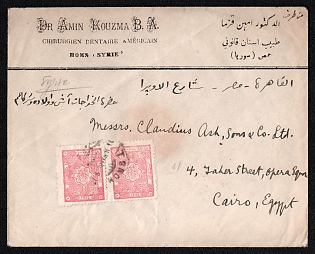 DR AMIN KOUZMA B. A.
CHIRURGIEN DENTAIRE AMÉRICAIN
HOMS (SYRIE)
الدكتور امين قزما
طبيب اسنان قانوني
حمص (سوريا)
القاهرة - مصر - شارع الاوبرا
Messrs. Claudius Ash, Sons & Co. Ltd.
4, Taher Street, Opera Sqre
Cairo, Egypt